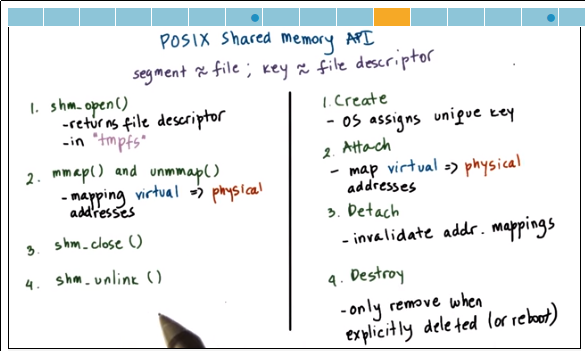 POSIX Shared memory API
segment ≈ file ; key ≈ file descriptor
1. shm_open()
-returns file descriptor
-in "tmpfs"
2. mmap() and unmmap()
-mapping virtual => physical
addresses
3. shm_close()
4. shm_unlink ()
1. Create
- OS assigns unique key
2. Attach
- map virtual => physical
addresses
3. Detach
- invalidate addr. mappings
4. Destroy
-only remove when
explicitly deleted (or reboot)